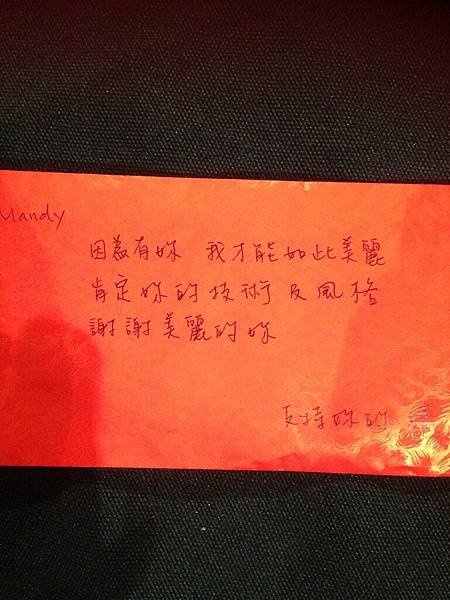 Mandy
因為有妳 我才能如此美麗
肯定妳的技術及風格
謝謝美麗的妳
支持妳的